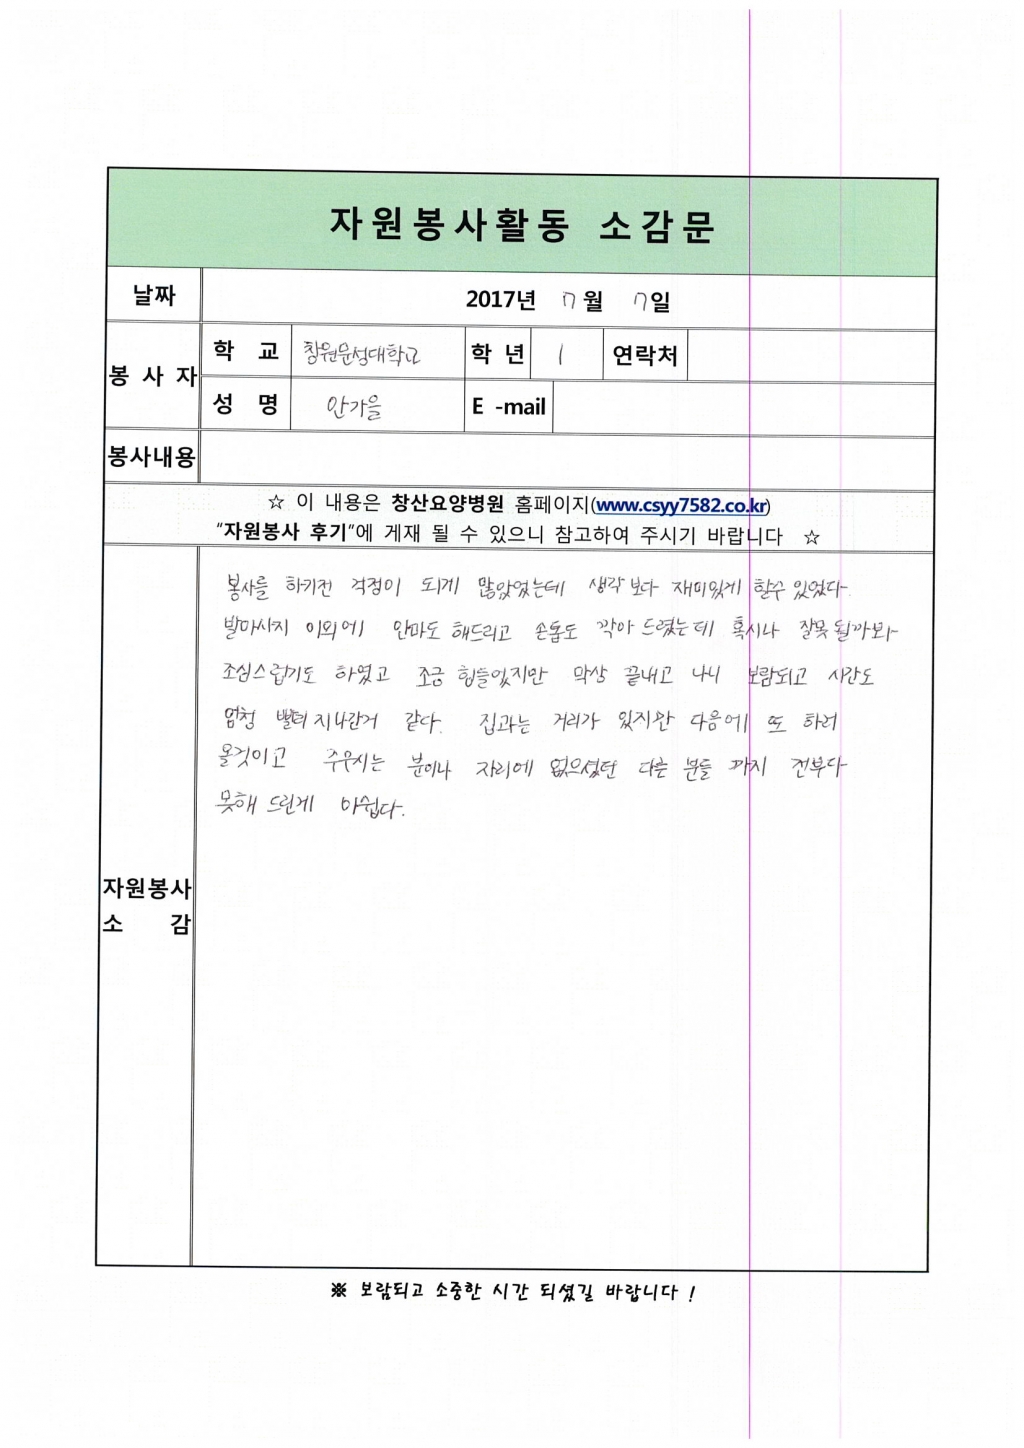 자원봉사활동 소감문
날짜 2017년 7월 7일
봉사자 학교 창원문성대학교 학년 1 연락처
성명 안가을 E-mail
봉사내용
☆ 이 내용은 창산요양병원 홈페이지(www.csyy7582.co.kr)
"자원봉사 후기"에 게재 될 수 있으니 참고하여 주시기 바랍니다 ☆
봉사를 하기전 걱정이 되게 많았었는데 생각보다 재미있게 할수 있었다.
발마사지 이외에 안마도 해드리고 손톱도 깍아 드렸는데 혹시나 잘못 될까봐
조심스럽기도 하였고 조금 힘들었지만 막상 끝내고 나니 보람되고 시간도
엄청 빨리 지나간거 같다. 집과는 거리가 있지만 다음에 또 하러
올것이고 주무시는 분이나 자리에 없으셨던 다른 분들 까지 전부다
못해 드린게 아쉽다.
자원봉사
소 감
※ 보람되고 소중한 시간 되셨길 바랍니다 !